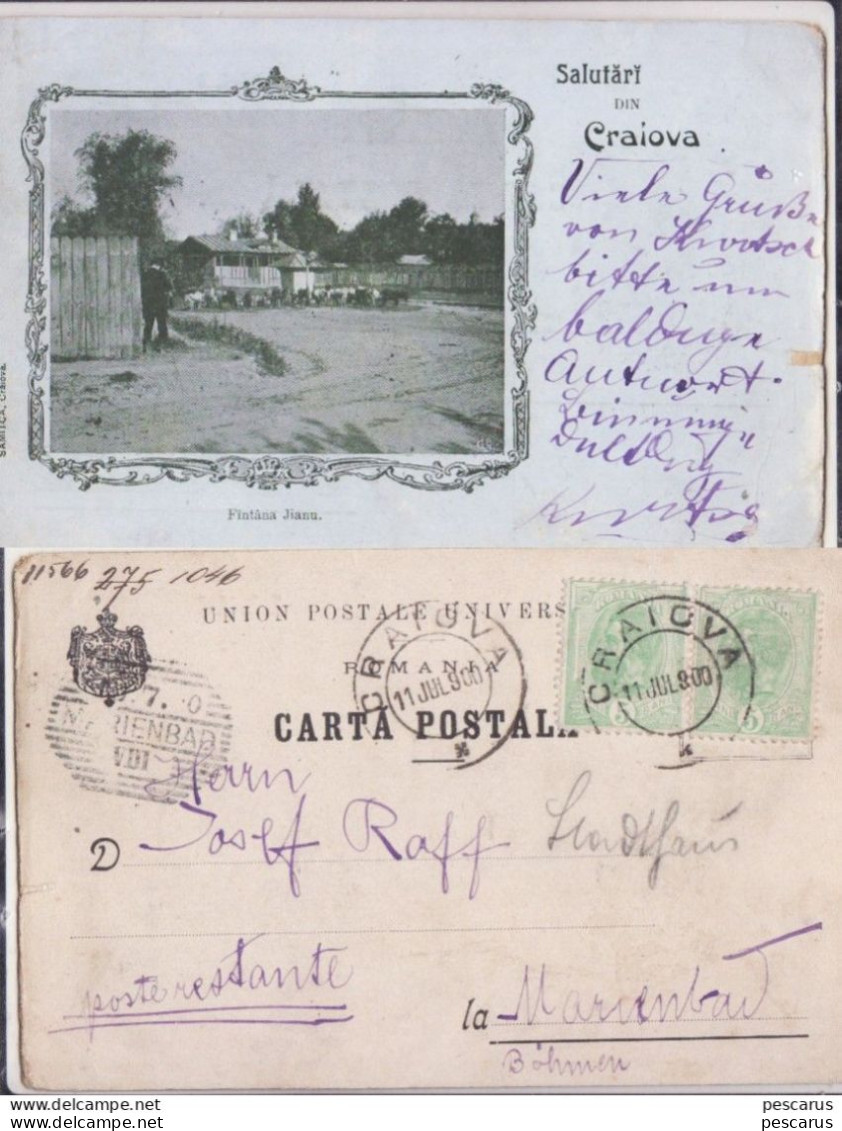 Salutărĭ
DIN
Craiova
Viele Grüße
von
bitte um
baldige
Antwort.
SAMITCA, Craiova.
Fîntâna Jianu.
11566 275 1046
UNION POSTALE UNIVERS
ROMANIA
CARTĂ POSTALA
CRAIOVA
11 JUL 900
CRAIOVA
11 JUL 900
5 5
7. 0
MARIENBAD
Herrn
D Josef Raff Stadthaus
poste restante
la Marienbad
Böhmen
pescarus
www.delcampe.net pescarus